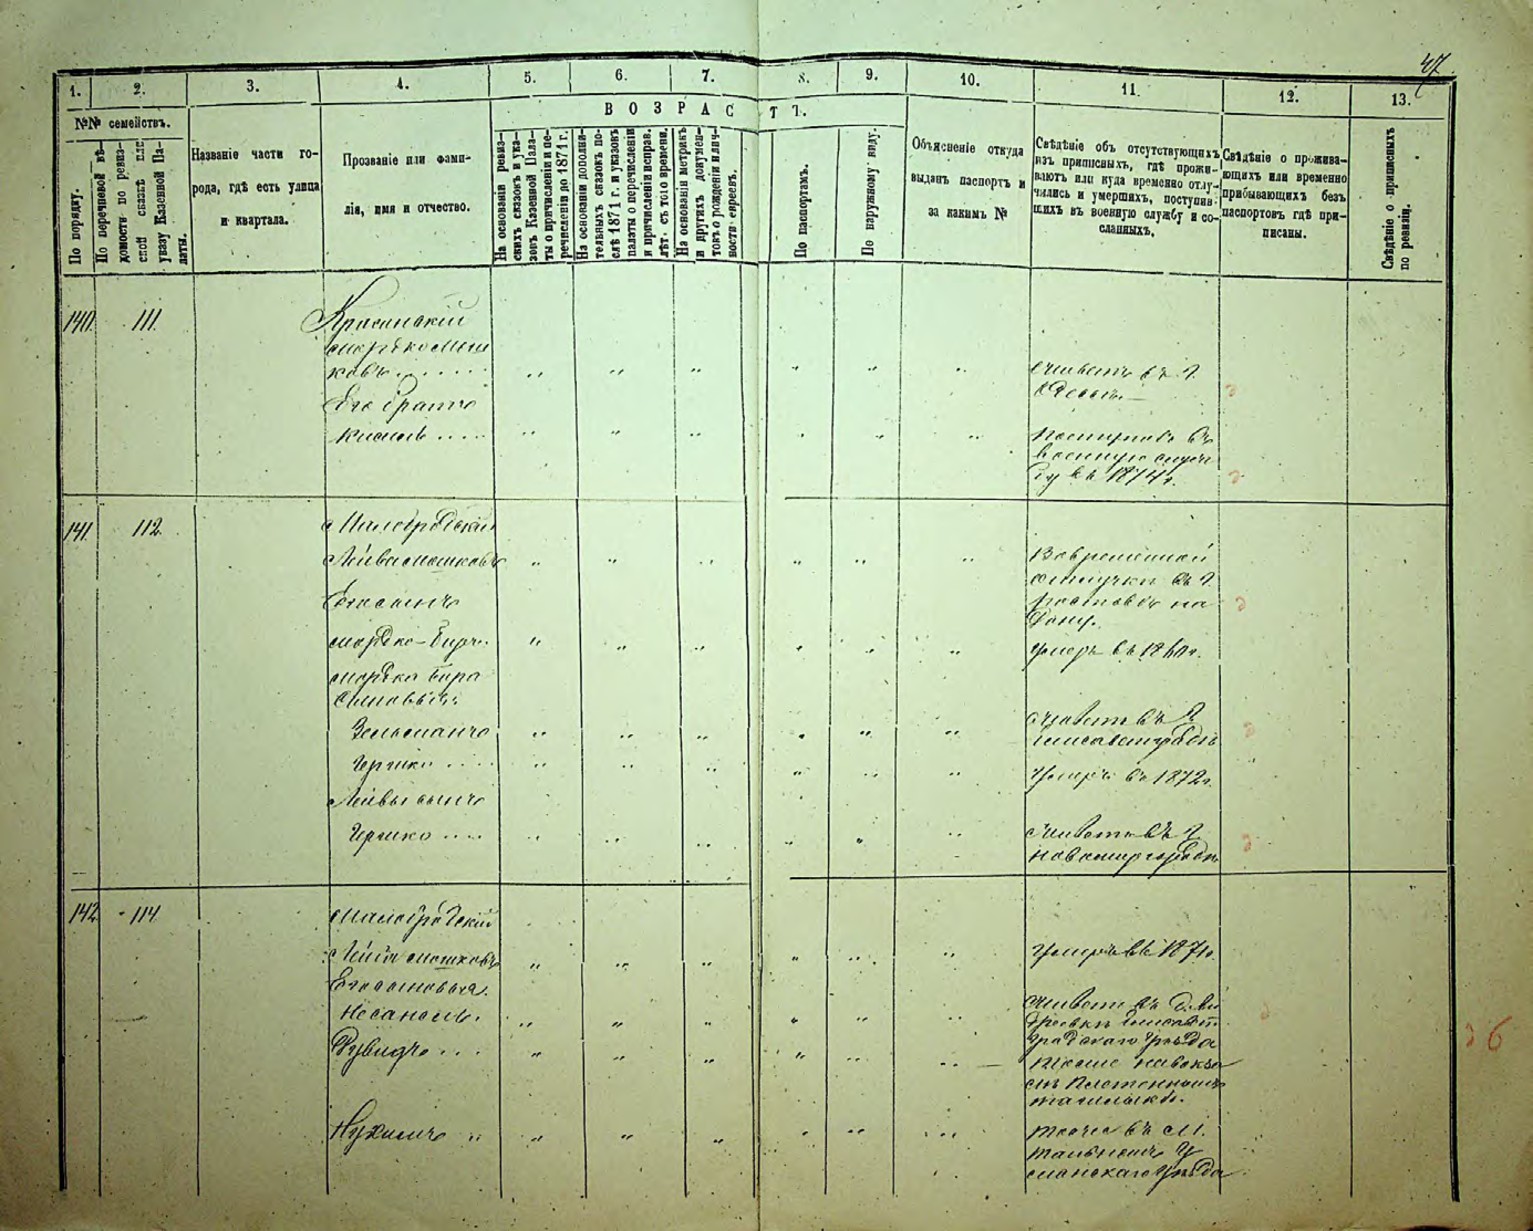 47
1. 2. 3. 4. 5. 6. 7. 8. 9. 10. 11. 12. 13.
№№ семействъ.
По порядку.
По перечневой вѣ-
домости по ревиз-
ской сказкѣ или
указу Казенной Па-
латы.
Названіе части го-
рода, гдѣ есть улица
и квартала.
Прозваніе или фами-
лія, имя и отчество.
ВОЗРАСТЪ.
На основаніи ревиз-
скихъ сказокъ и ука-
зовъ Казенной Пала-
ты о причисленіи и пе-
речисленіи до 1871 г.
На основаніи дополни-
тельныхъ сказокъ по-
слѣ 1871 г. и указовъ
палаты о перечисленіи
и причисленіи исправ.
лѣт. съ того времени.
На основаніи метрикъ
и другихъ докумен-
товъ о рожденіи и лич-
ности евреевъ.
По паспортамъ.
По наружному виду.
Объясненіе откуда
выданъ паспортъ и
за какимъ №
Свѣдѣніе объ отсутствующихъ
изъ приписныхъ, гдѣ прожи-
ваютъ или куда временно отлу-
чились и умершихъ, поступив-
шихъ въ военную службу и со-
сланныхъ.
Свѣдѣніе о прожива-
ющихъ или временно
прибывающихъ безъ
паспортовъ гдѣ при-
писаны.
Свѣдѣніе о приписныхъ
по ревизіи.
140 111
Красинскій
ковъ
Живетъ въ г.
Одессѣ.
Его братъ
Кисиль
Поступилъ въ
военную служ
бу въ 1874г.
141 112
Малобродскій
Лейба Мошковъ
Во временной
отлучкѣ въ г.
Ростовѣ на
Дону.
Его сынъ
Мордко-Биръ
Умеръ въ 1860г.
Мордка Бира
Сыновья:
Зельманъ
Живетъ въ г.
Елисаветградѣ
Гершко
Умеръ въ 1872г.
Лейбы сынъ
Гершко
Живетъ въ г.
Новомиргородѣ
142 114
Малобродскій
Лейба Мошковъ
Умеръ въ 1871г.
Его сыновья
Живетъ въ
Елисавет
градскаго уѣзда
Дувидъ
Тоже
Плетенномъ
Ташлыкѣ.
Нухимъ
Тоже въ м.
Тальномъ У
манскаго уѣзда
6